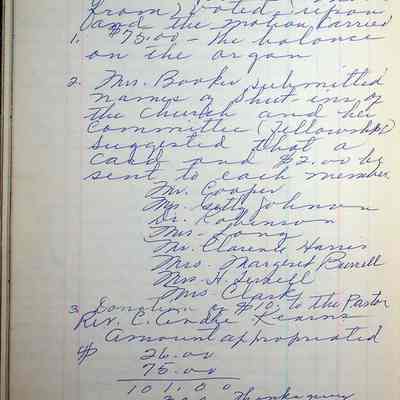 and the motion carried
1. $75.00 - the balance
on the organ
2. Mrs. Booker submitted
names of shut-ins of
the Church and her
Committee (fellowship)
suggested that a
card and $2.00 be
sent to each member
Mr. Cooper
Mrs. Johnson
Dr. Robinson
Mrs. Long
Mr. Clarence Harris
Mrs. Margaret
Mrs. H.
Mrs. Clark
3. Donation of $10. to the Pastor
Rev. C. Kearns
Amount appropriated
$ 26.00
75.00
101.00